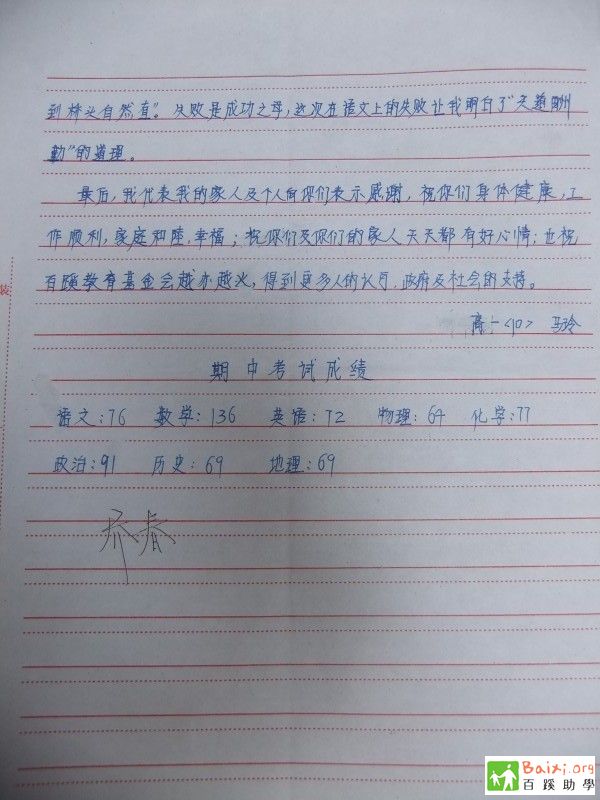 到桥头自然直”。失败是成功之母,这次在语文上的失败让我明白了“天道酬
勤”的道理。
最后,我代表我的家人及个人向你们表示感谢,祝你们身体健康,工
作顺利,家庭和睦,幸福;祝你们及你们的家人天天都有好心情;也祝
百蹊教育基金会越办越火,得到更多人的认可、政府及社会的支持。
高一<10> 马玲
期中考试成绩
语文:76 数学:136 英语:72 物理:64 化学:77
政治:91 历史:69 地理:69
乔春
装
Baixi.org
百蹊助學